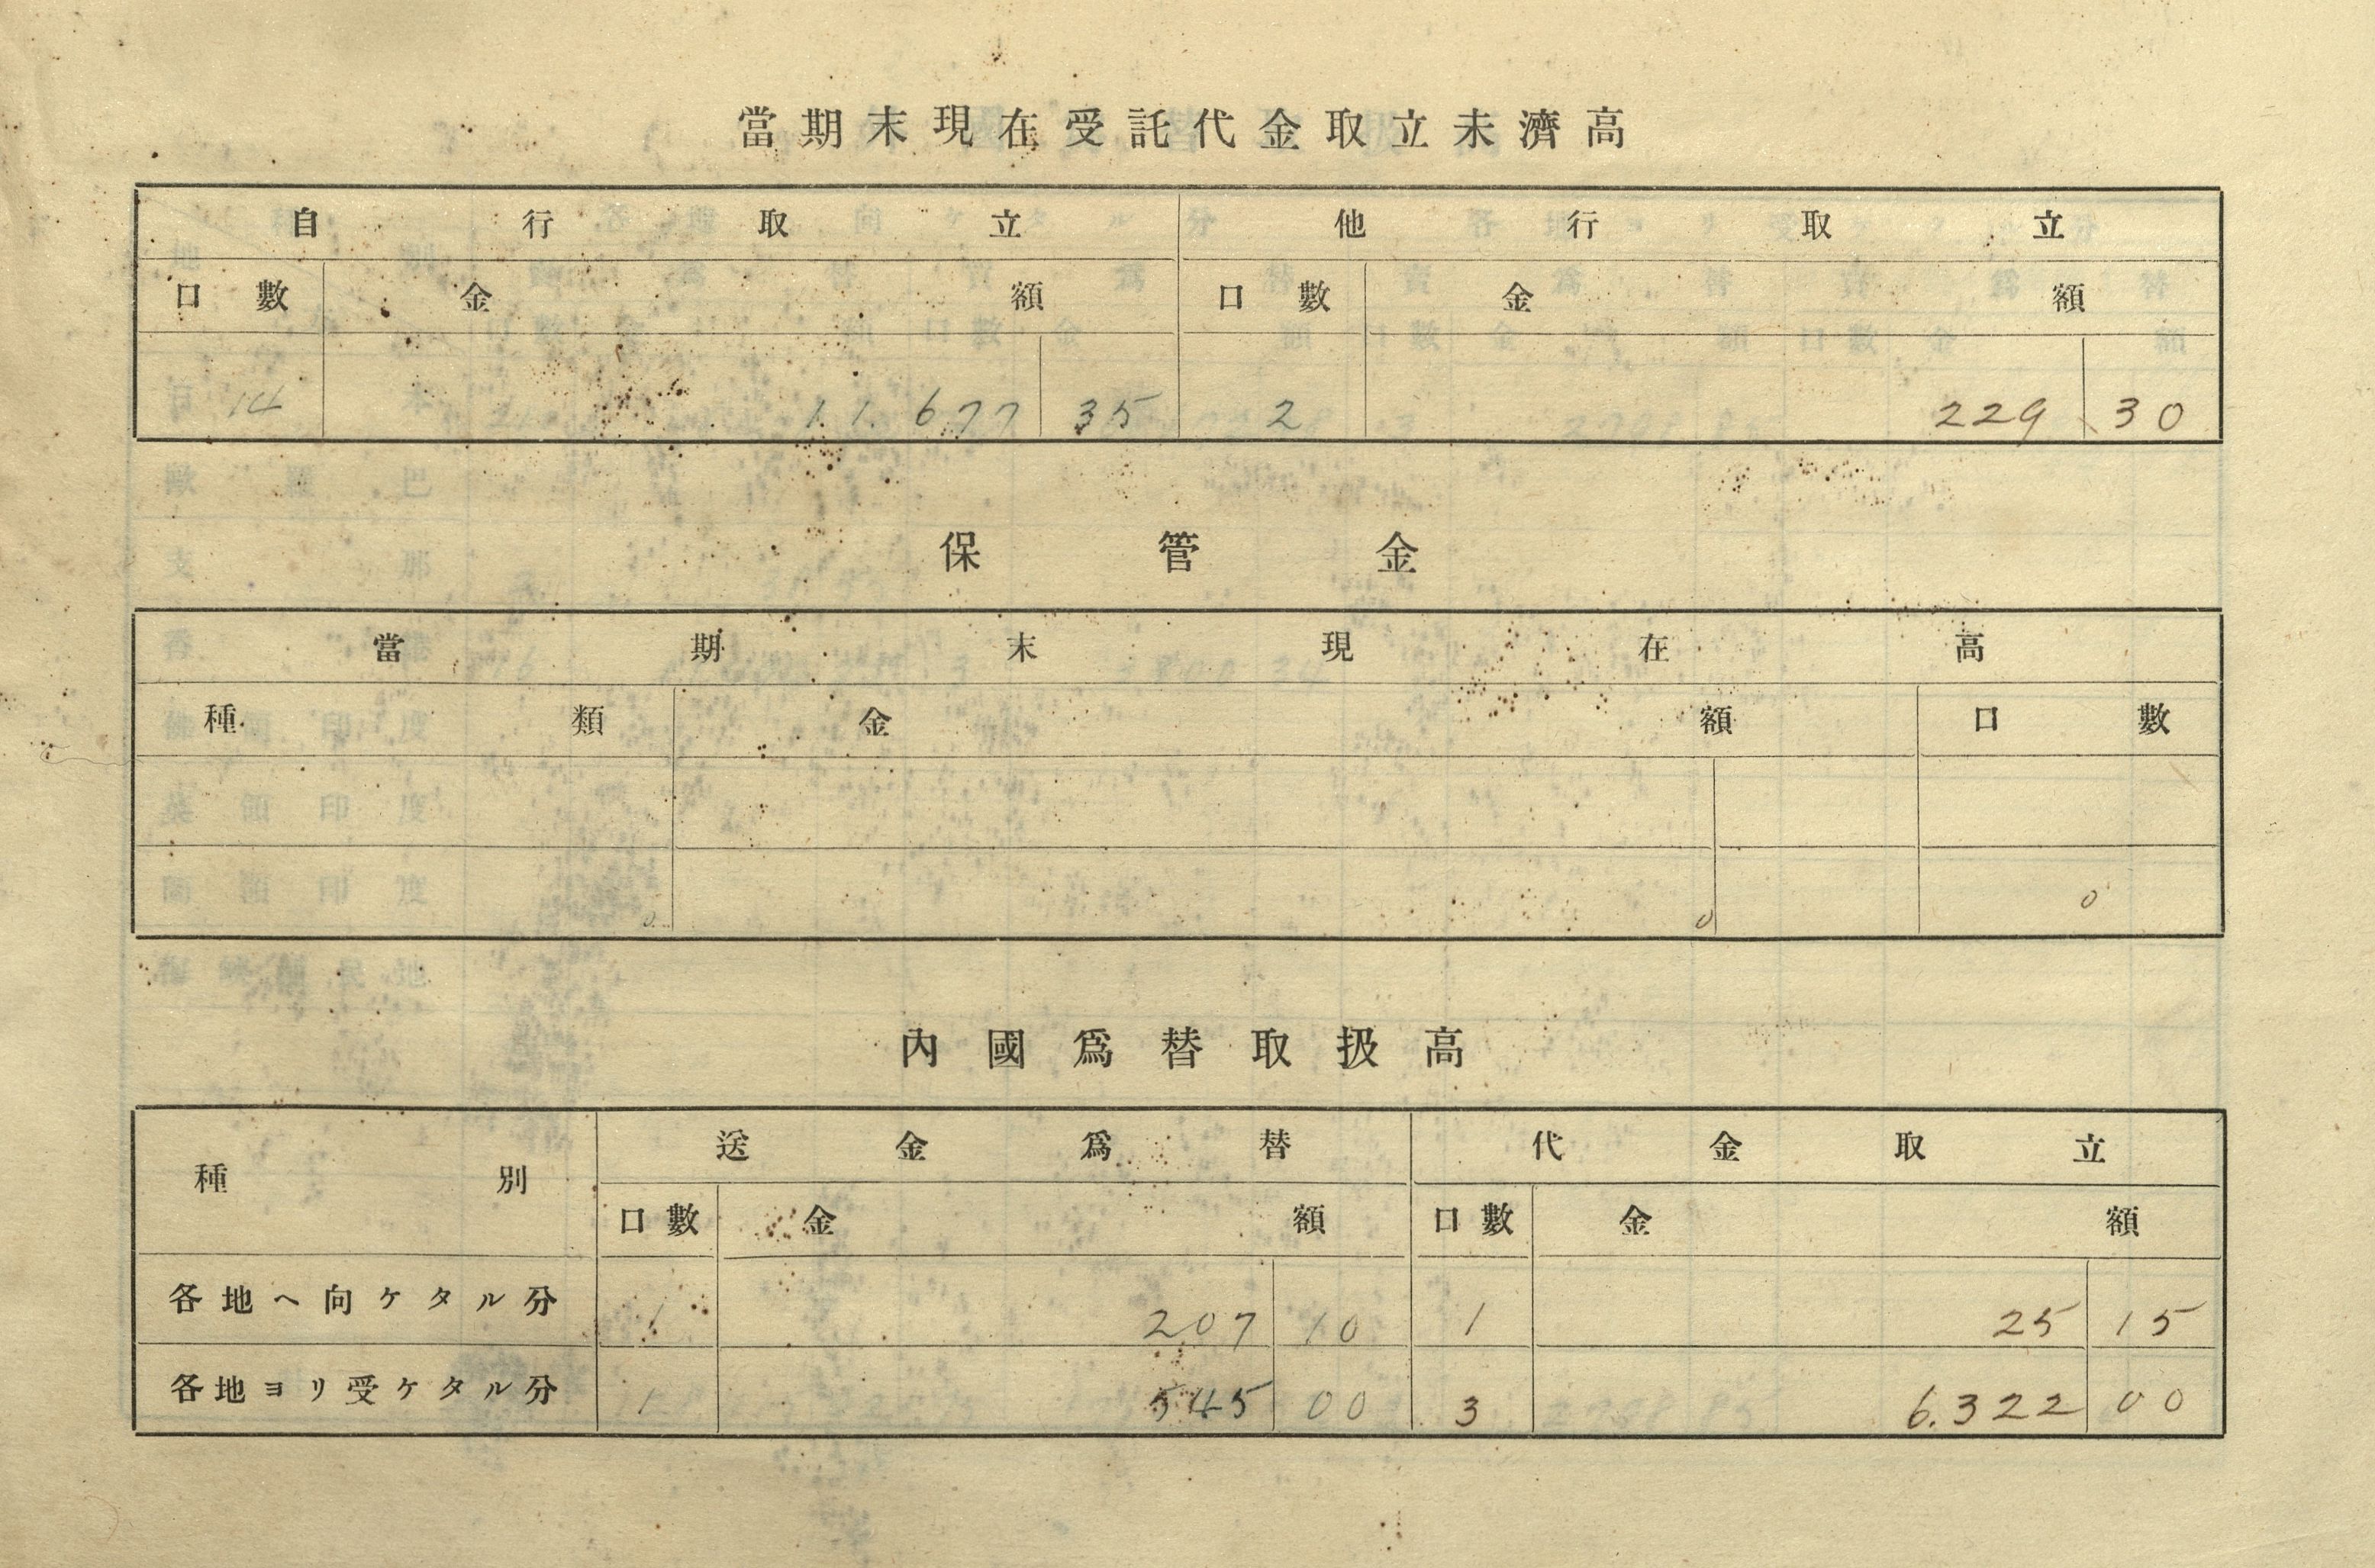 當期末現在受託代金取立未濟高
自行取立 他行取立
口數 金額 口數 金額
14 11.677 35 2 229 30
保管金
當期末現在高
種類 金額 口數
0 0 0
內國爲替取扱高
種別 送金爲替 代金取立
口數 金額 口數 金額
各地ヘ向ケタル分 1 207 10 1 25 15
各地ヨリ受ケタル分 1 545 00 3 6.322 00